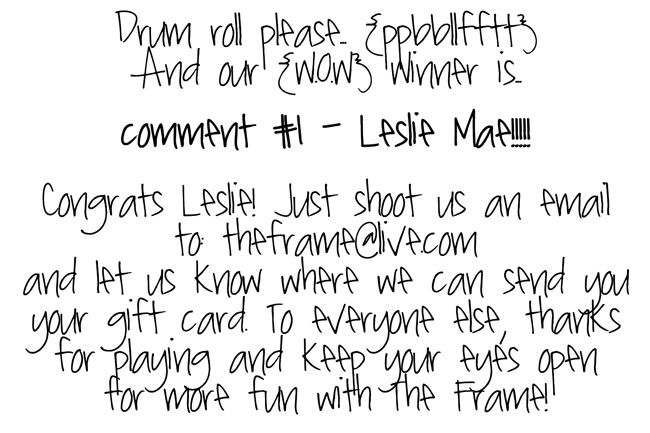 Drum roll please... {ppbbllfftt}
And our {W.O.W} Winner is...
comment #1 - Leslie Mae!!!!!
Congrats Leslie! Just shoot us an email
to: theframe@live.com
and let us know where we can send you
your gift card. To everyone else, thanks
for playing and keep your eye's open
for more fun with The Frame!